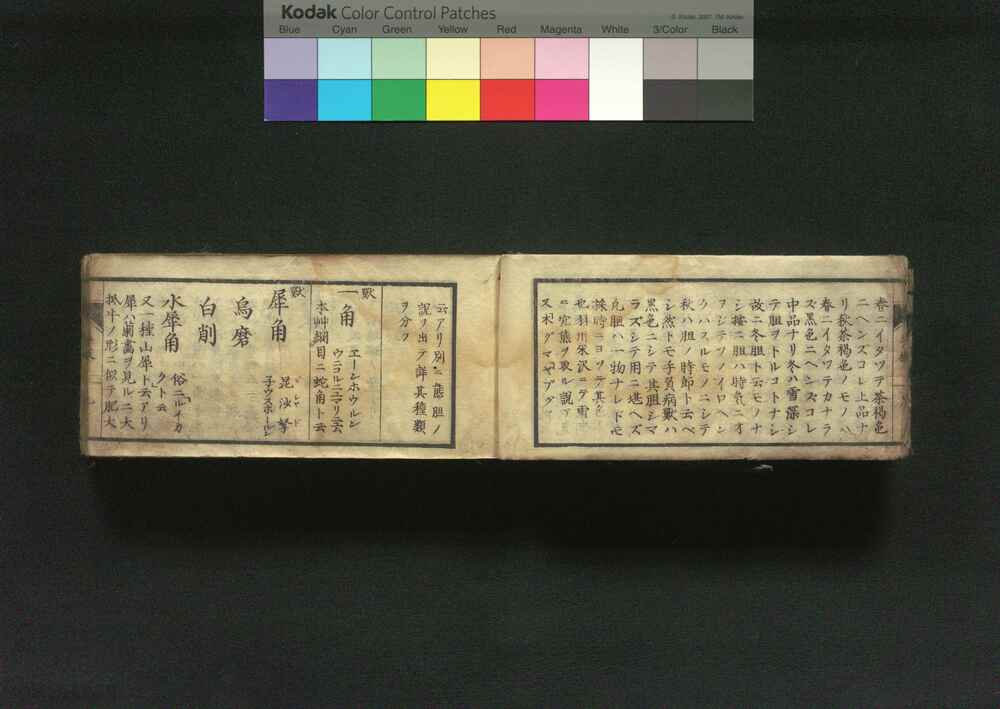 Kodak Color Control Patches
© Kodak, 2007 TM: Kodak
Blue Cyan Green Yellow Red Magenta White 3/Color Black
春ニイタツテ茶褐色
ニヘンズコレ上品ナ
リ秋茶褐色ノモノハ
春ニイタツテカナラ
ズ黒色ニヘンスコレ
中品ナリ冬ハ雪深シ
テ胆ヲトルコトナシ
故ニ冬胆ト云モノナ
シ按ニ胆ハ時氣ニオ
フシテソノイロヘン
クハフルモノニシテ
秋ハ胆ノ時節ト云ベ
シ然トモ手負病獣ハ
黒色ニシテ其胆シマ
ラズシテ用ニ堪ヘズ
凡胆ハ一物ナレドモ
採時ニヨツテ其色
也羽州米沢ニテ雪
ニ穴熊ヲ取ル説
又木グマヤアグマ
云アリ別ニ熊胆ノ
説ヲ出シテ詳其種類
ヲ分ツ
獣
一角 エーンホウルン
ウニコルニウリニ云
本艸綱目ニ蛇角ト云
獣
犀角 毘沙拏
子ウスホールン
烏磨
白削
水犀角 俗ニルイカ
クト云
又一種山犀ト云アリ
犀ハ蘭畵ヲ見ルニ大
抵牛ノ形ニ似テ肥大